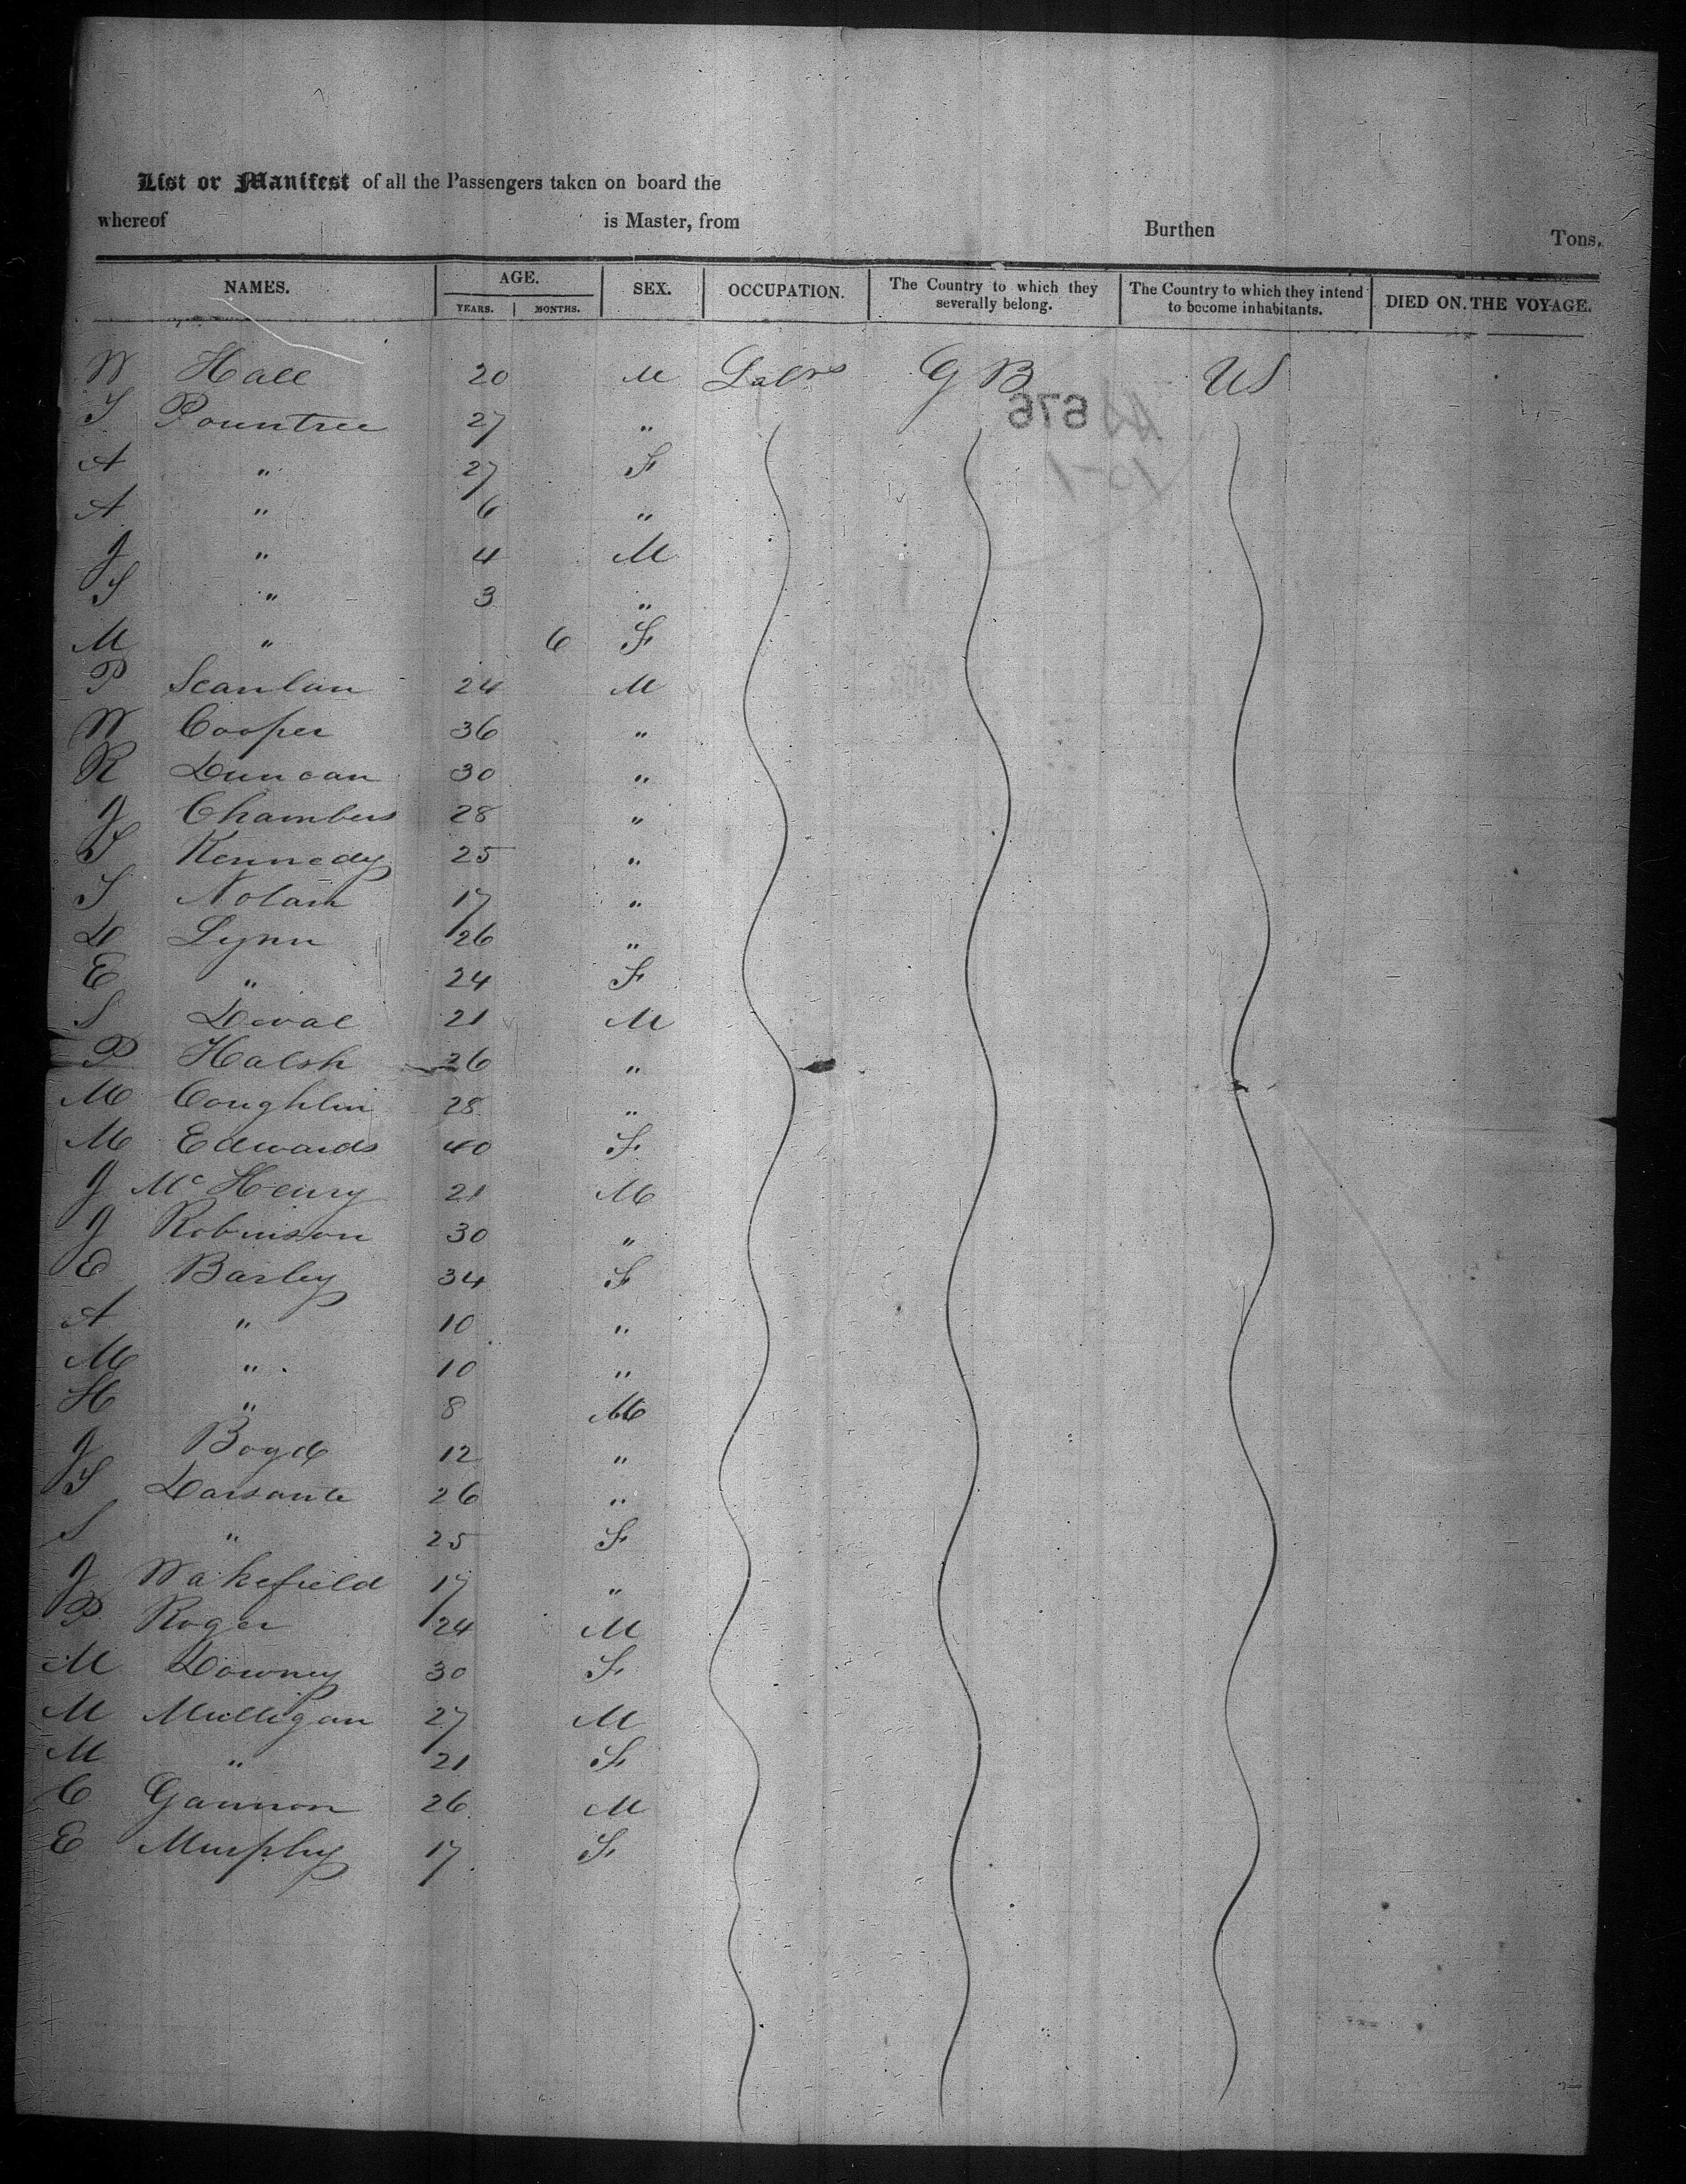 List or Manifest of all the Passengers taken on board the
whereof is Master, from Burthen Tons.
NAMES. AGE. SEX. OCCUPATION. The Country to which they severally belong. The Country to which they intend to become inhabitants. DIED ON THE VOYAGE.
YEARS. MONTHS.
W Hall 20 M Labrs G B US
676
S Pountree 27 "
A " 27 F
A " 6 "
J " 4 M
S " 3 "
M " 6 F
P Scanlan 24 M
W Cooper 36 "
R Duncan 30 "
J Chambers 28 "
Kennedy 25 "
S Nolan 17 "
D Lynn 26 "
E " 24 F
S Deval 21 M
P Halsh 26 "
M Coughlin 28 "
M Edwards 40 F
J Mc Henry 21 M
J Robinson 30 "
E Barley 34 F
A " 10 "
M " 10 "
H " 8 M
J Boyd 12 "
S 26 "
S " 25 F
J Wakefield 17 "
P Roger 24 M
M Downey 30 F
M Mulligan 27 M
M " 21 F
C Gannon 26 M
E Murphy 17 F